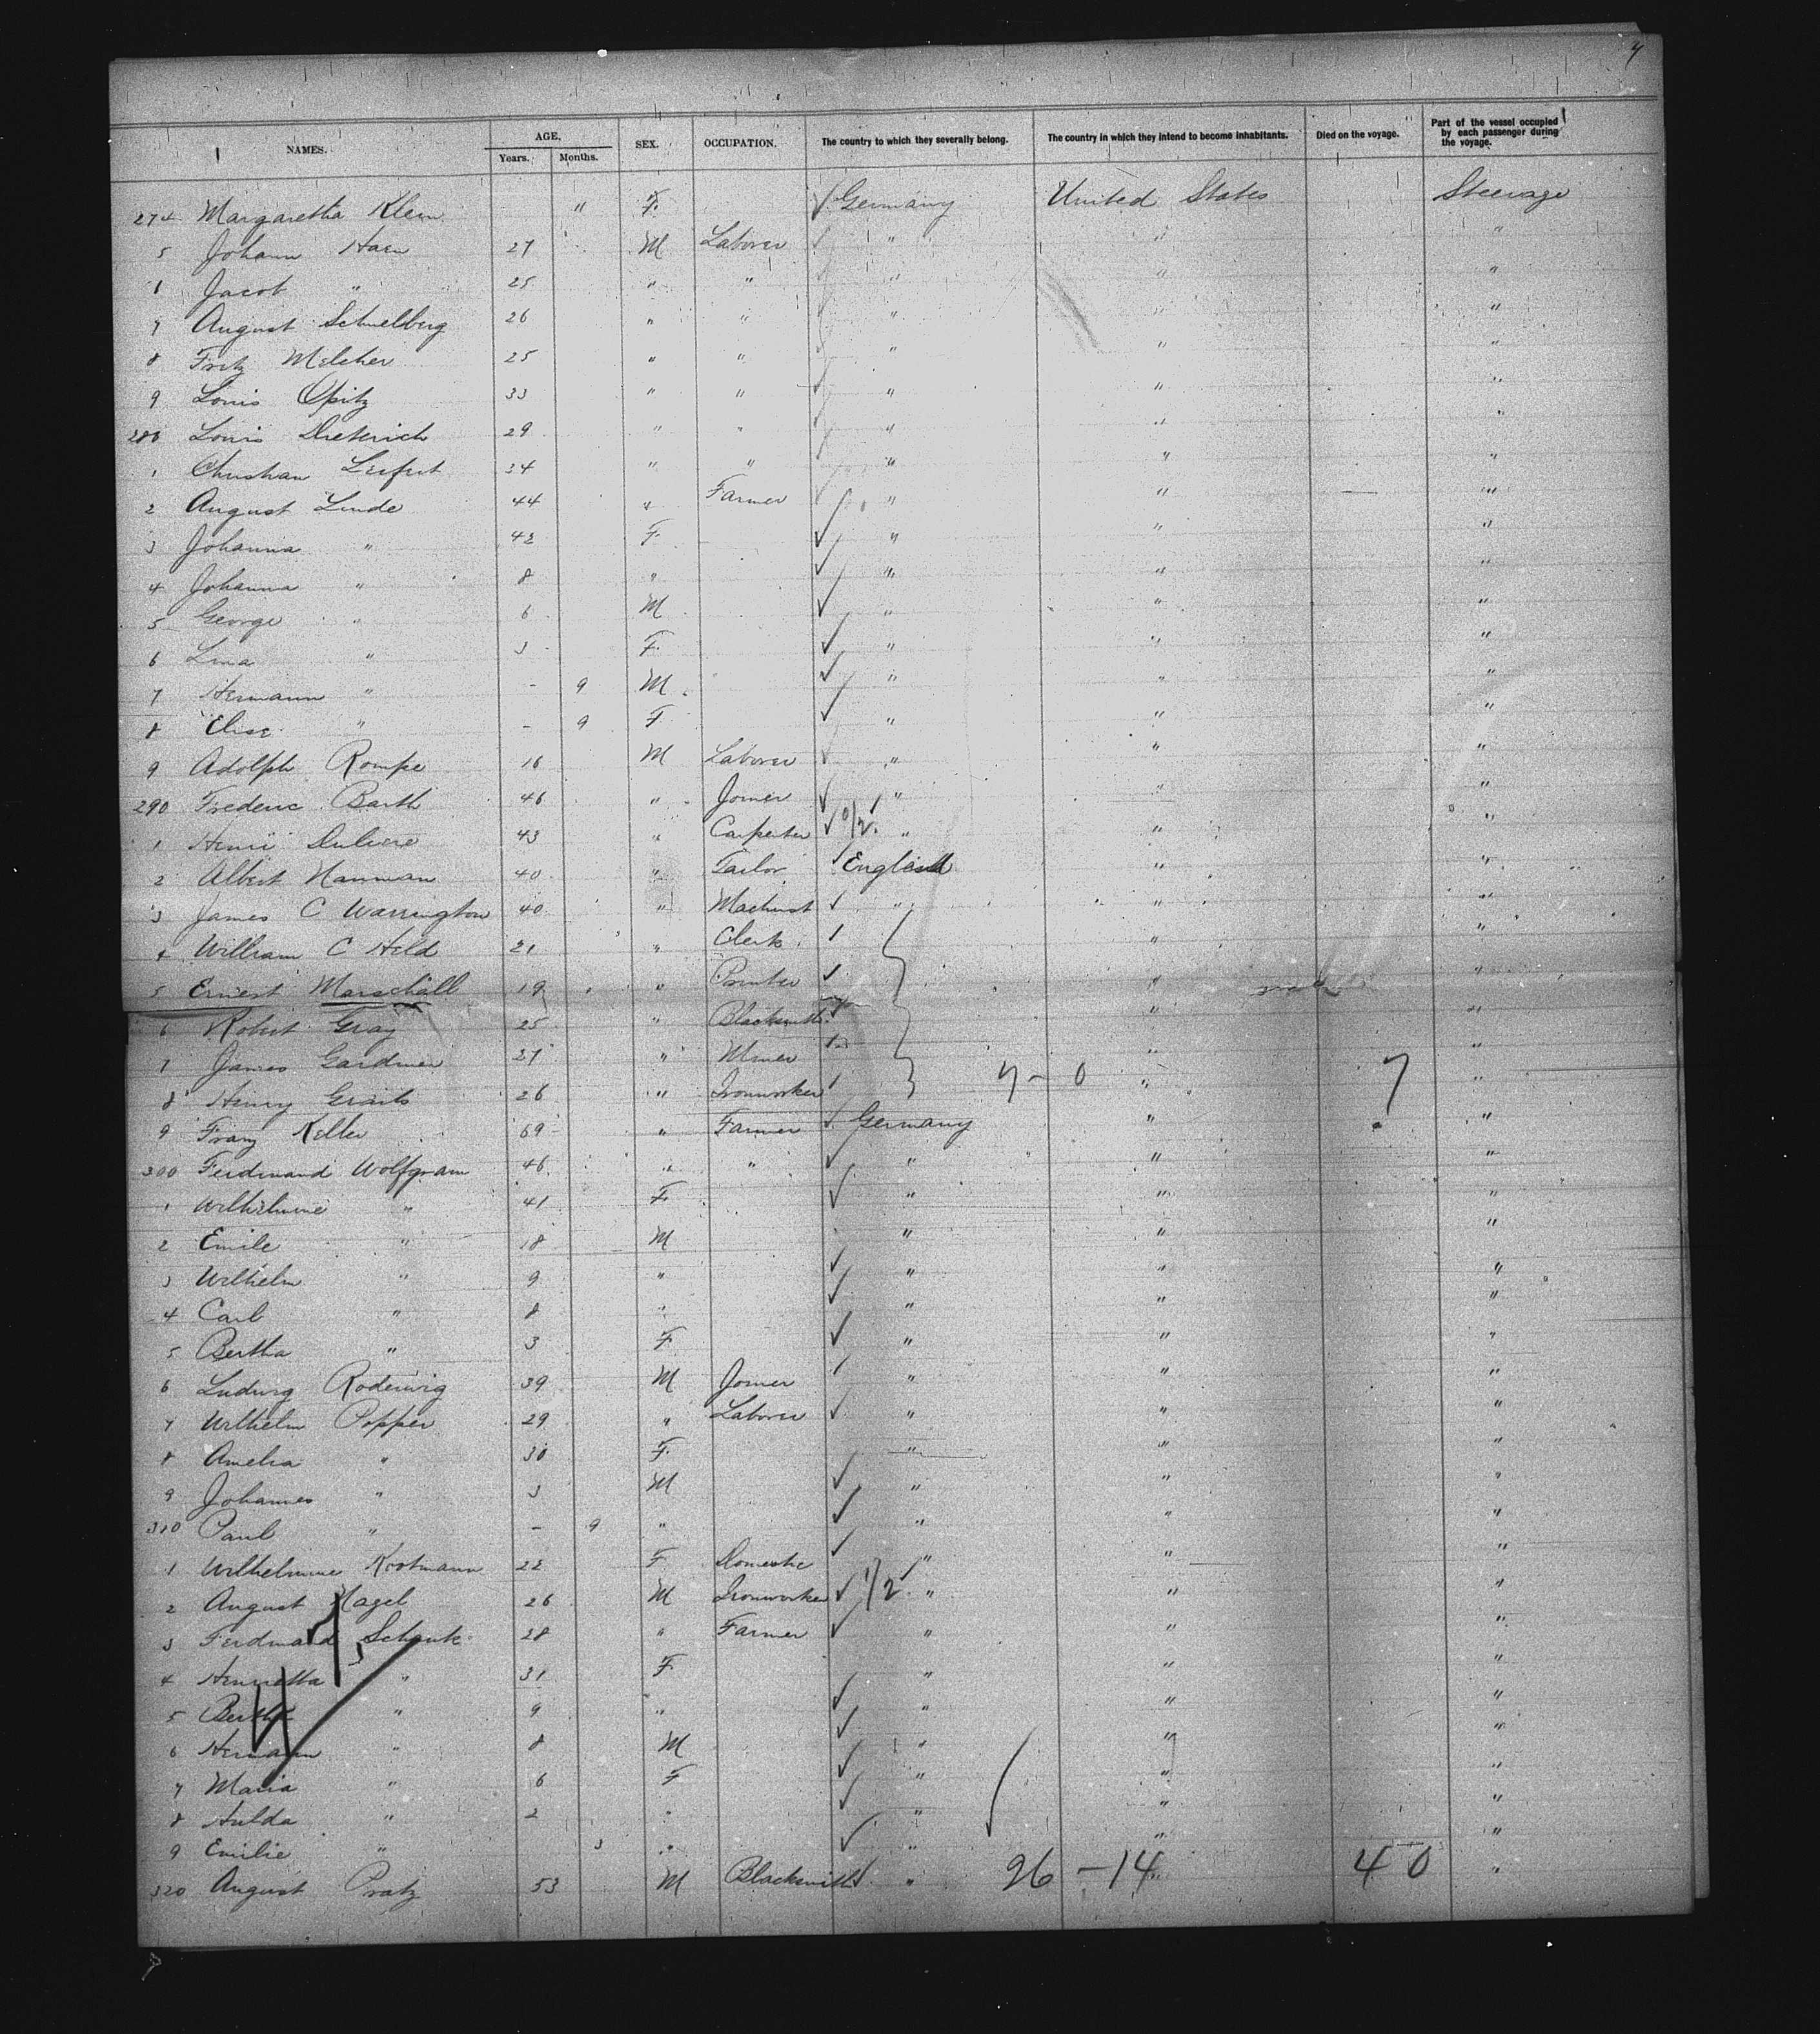 4
NAMES. AGE. Years. Months. SEX. OCCUPATION. The country to which they severally belong. The country in which they intend to become inhabitants. Died on the voyage. Part of the vessel occupied by each passenger during the voyage.
274 Margaretha Klein " F. Germany United States Steerage
5 Johann Haen 27 M Laborer " " "
Jacob " 25 " " " " "
7 August Schnelberg 26 " " " " "
8 Fritz Melcher 25 " " " " "
9 Louis Opitz 33 " " " " "
280 Louis Dieterich 29 " " " " "
1 Christian 34 " " " " "
2 August Linde 44 " Farmer " " "
3 Johanna " 42 F. " " "
4 Johanna " 8 " " " "
5 George " 6 M " " "
6 Lina " 3 F. " " "
7 Hermann " - 9 M " " "
8 Elise " - 9 F " " "
9 Adolph Rompe 16 M Laborer " " "
290 Frederic Barth 46 " Joiner " " "
1 Henri 43 " Carpenter 0/2 " " "
2 Albert Hanman 40 " Tailor England " "
3 James C Warrington 40 " Machinist " " "
4 William C Held 21 " Clerk " "
5 Ernest Marschall 19 " Painter " "
6 Robert Gray 25 " Blacksmith " "
7 James Gardiner 27 " Miner " "
8 Henry 26 " Ironworker 7 - 0 " 7 "
9 Franz Keller 69 " Farmer Germany " "
300 Ferdinand Wolfgram 46 " " " " "
1 Wilhelmine " 41 F. " " "
2 Emile " 18 M " " "
3 Wilhelm " 9 " " " "
4 Carl " 8 " " " "
5 Bertha " 3 F " " "
6 Ludwig Roderwig 39 M Joiner " " "
7 Wilhelm Popper 29 " Laborer " " "
8 Amelia " 30 F. " " "
9 Johannes " 3 M " " "
310 Paul " - 9 " " " "
1 Wilhelmine Kortmann 22 F Domestic " " "
2 August Nagel 26 M Ironworker 1/2 " " "
3 Ferdinand Schenk 28 " Farmer " " "
4 Henrietta " 31 F " " "
5 Bertha " 9 " " " "
6 Hermann " 8 M " " "
7 Maria " 6 F " " "
8 Hulda " 2 " " " "
9 Emilie " 3 " " " "
320 August Pratz 53 M Blacksmith " 26 - 14 " 40 "